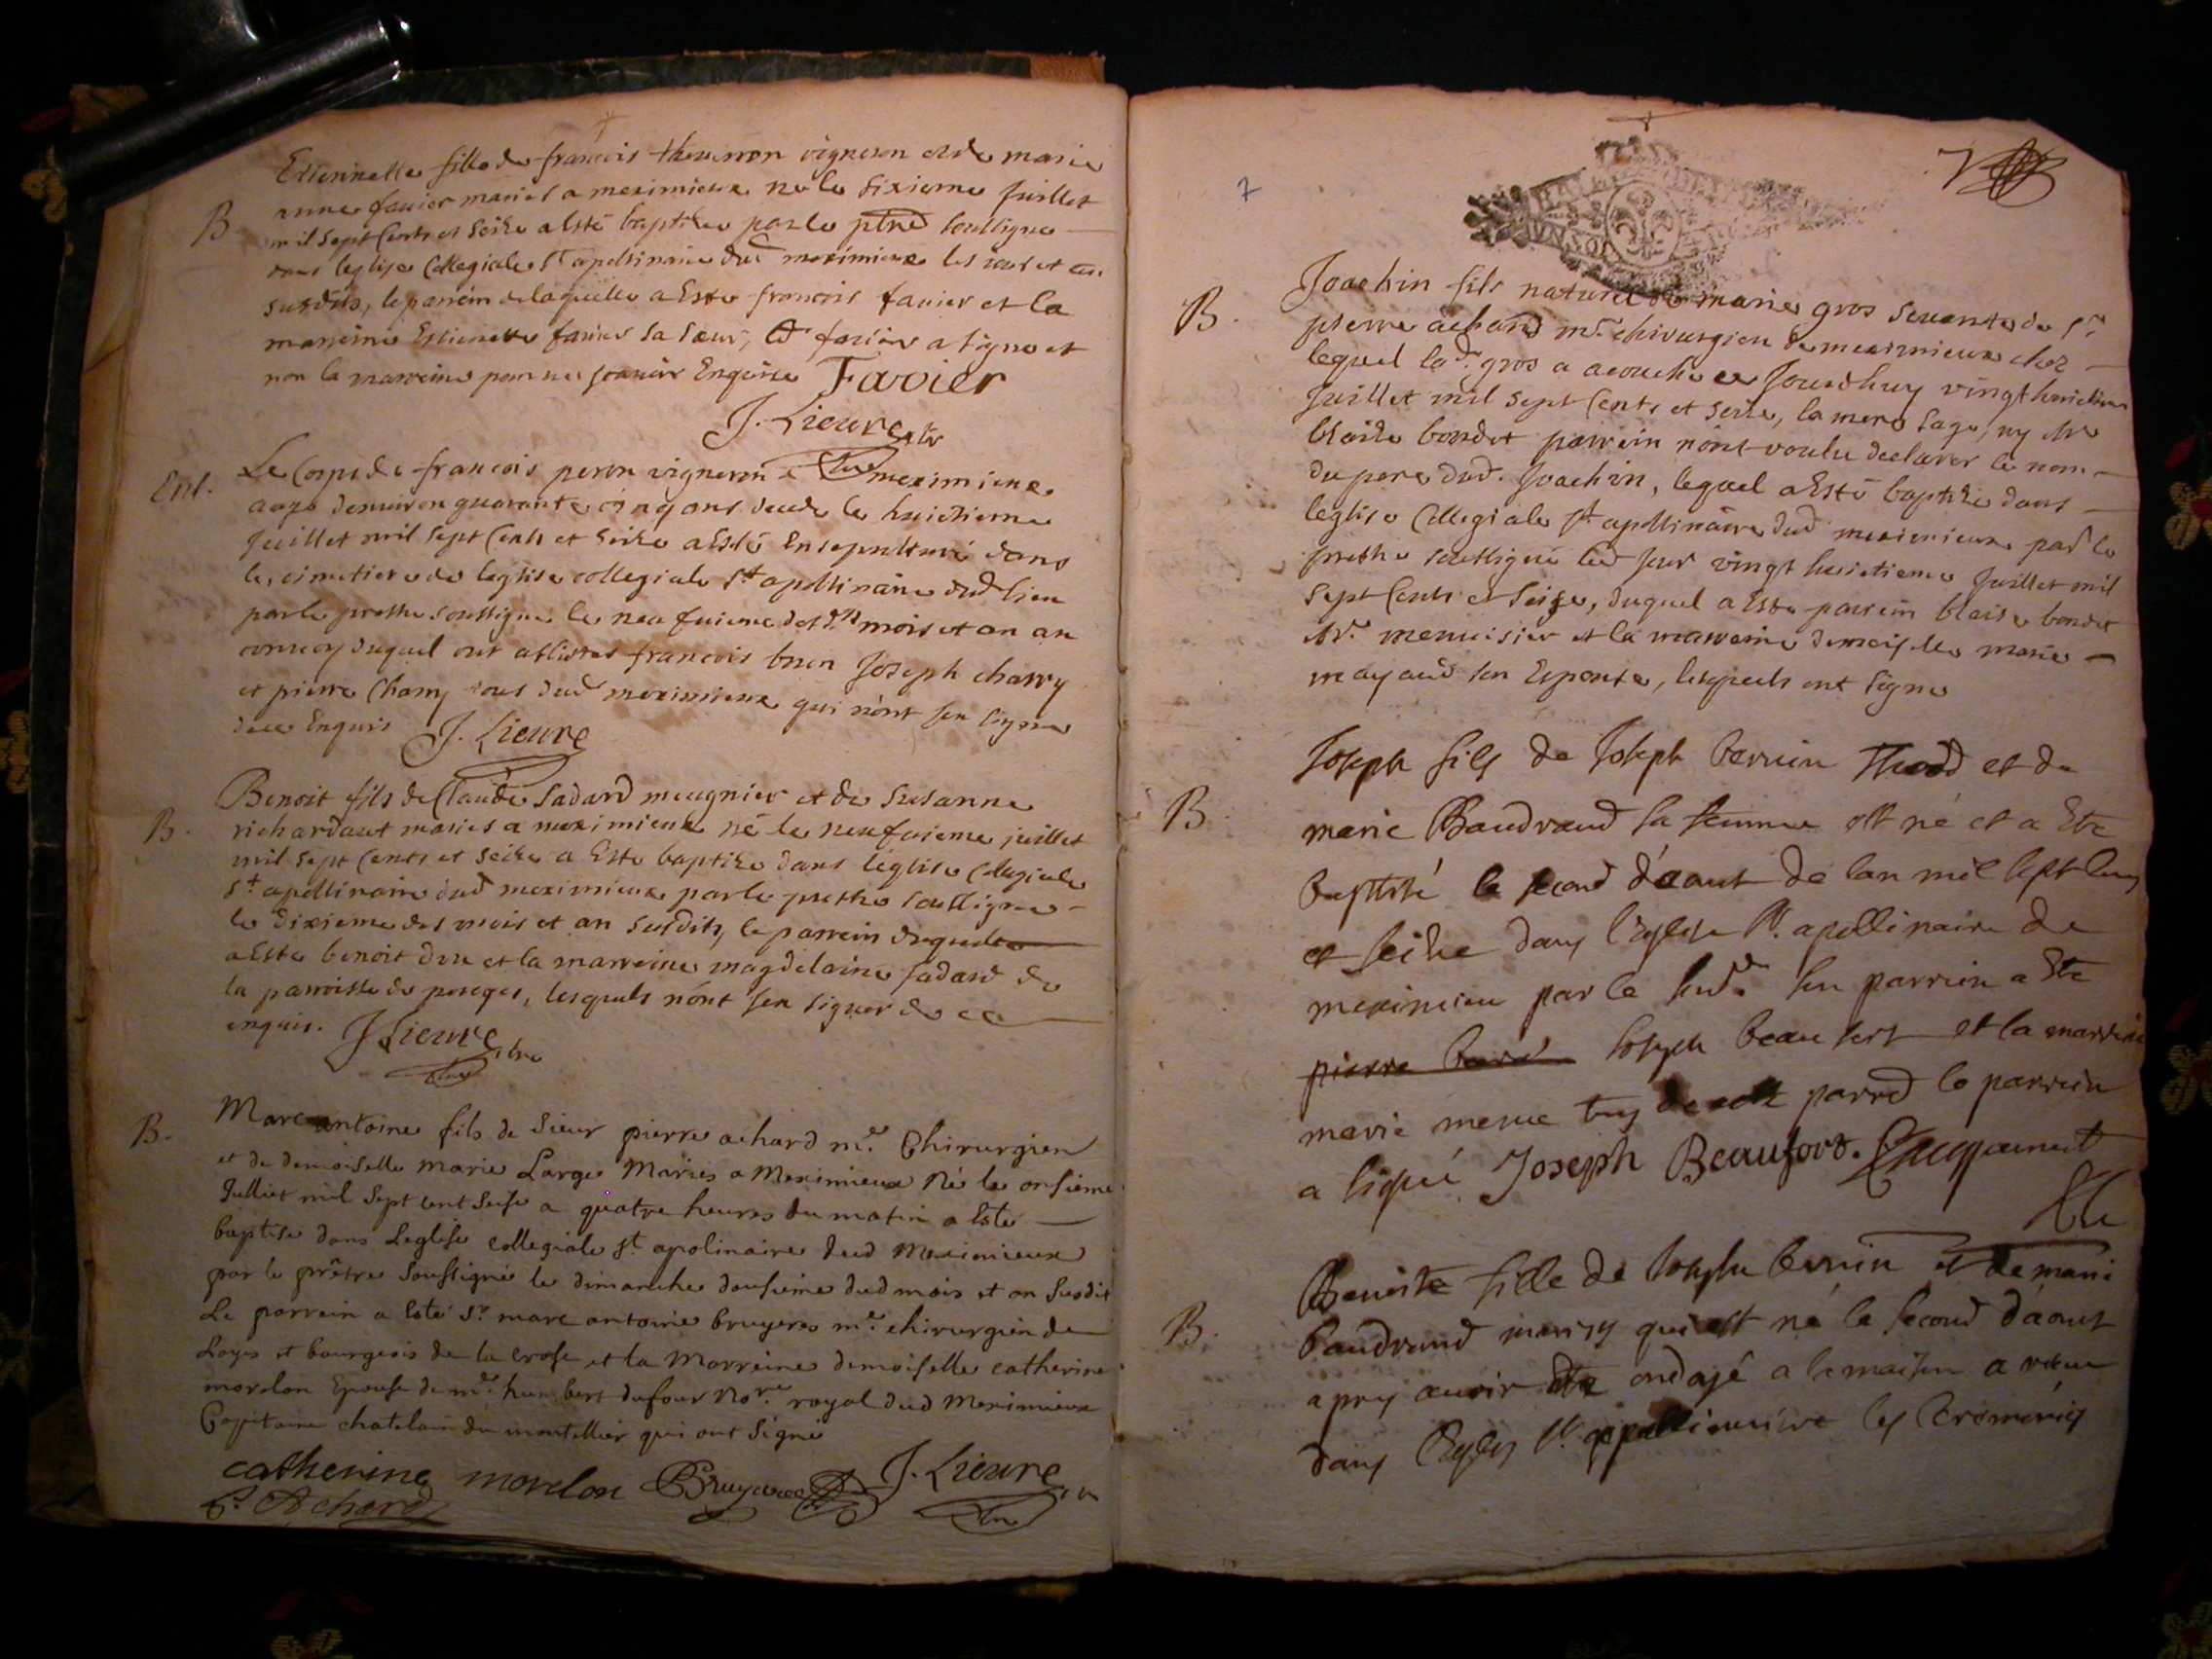 Estiennette fille de francois thevenon vigneron et de marie
B anne favier mariés a meximieux née le sixieme Juillet
mil sept Cents et Seize a Esté baptisée par le ptre soussigné
dans leglise Collegiale St apollinaire dud meximieux les jour et an
susdits, le parrein de laquelle a Esté francois favier et la
marreine Estiennette favier sa sœur, led favier a signé et
non la marreine pour ne scavoir Enquise Favier
J. Lieure
Ent. Le Corps de francois peron vigneron meximieux
aagé denviron quarante cinq ans decedé le huictieme
Juillet mil sept Cents et Seize a Esté Ensepulturé dans
le cimetiere de leglise collegiale St apollinaire dud lieu
par le prestre soussigné le neufvieme des mois et an au
convoy duquel ont assistés francois brun Joseph charvy
et pierre Charvy tous dud meximieux qui n'ont sceu signer
de ce Enquis J. Lieure
Benoit fils de Claude Sadard meugnier et de Susanne
B. richardant mariés a meximieux né le neufvieme juillet
mil sept Cents et Seize a Esté baptisé dans leglise Collegiale
St apollinaire dud meximieux par le prestre soussigné
le dixieme des mois et an susdits, le parrein duquel
a Esté benoit et la marreine magdelaine sadard de
la parroisse de peroges, lesquels n'ont sceu signer de ce
enquis. J Lieure
B. Marc antoine fils de Sieur pierre achard me. Chirurgien
et de demoiselle marie Large Mariés a Meximieux Né le onsieme
Julliet mil Sept cent Seise a quatre heures du matin a Esté
baptisé dans Leglise collegiale St. apolinaire dud Meximieux
par le prêtre Soussigné le dimanche dousieme dud mois et an susdit
Le parrein a Esté Sr. marc antoine bruyeres me. chirurgien de
Loyes et bourgeois de la crose et la Marreine demoiselle catherine
morelon Epouse de me. humbert dufour Nore. royal dud Meximieux
Capitaine chatelain du montellier qui ont Signé
catherine morelon Bruyeres J. Lieure
P. Achard
7
7
Joachin fils naturel de marie gros servante de Sr
B. pierre achard me. chirurgien de meximieux chez
lequel lad. gros a acouché ce Jourdhuy vingt huictieme
Juillet mil sept Cents et seize, la mere sage, ny
blaise bondet parrein n'ont voulu declarer le nom
du pere dud. Joachin, lequel a Esté baptisé dans
leglise Collegiale St apollinaire dud meximieux par le
prestre soussigné led jour vingt huictieme Juillet mil
sept Cents et Seize, duquel a Esté parrein blaise bondet
Me. menuisier et la marreine demoiselle marie
mayaud son Espouse, lesquels ont signé
Joseph fils de Joseph bernin et de
B marie Baudrand sa femme est né et a Eté
baptisé le second d'aout de lan mil sept cens
et seize dans l'Eglise St. apollinaire de
meximieu par le son parrein a Eté
pierre Joseph beaufort et la marreine
marie parrd le parrein
a signé Joseph Beaufort. Jacquemet
Benoite fille de Joseph bernin et de marie
B. baudrand mariés qui est né le second d'aout
apres avoir eté ondoyé a la maison a receu
dans l'Eglise St. appollinaire les ceremonies